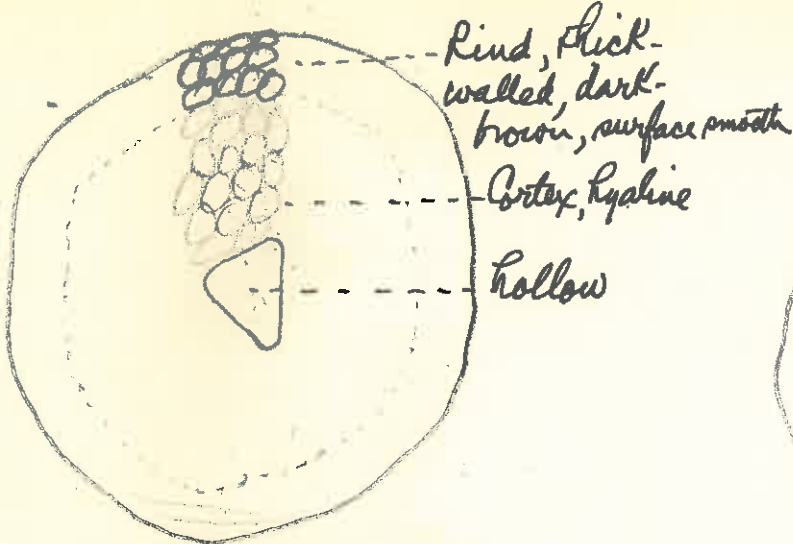 Rind, thick-
walled, dark-
brown, surface smooth
Cortex, hyaline
hollow